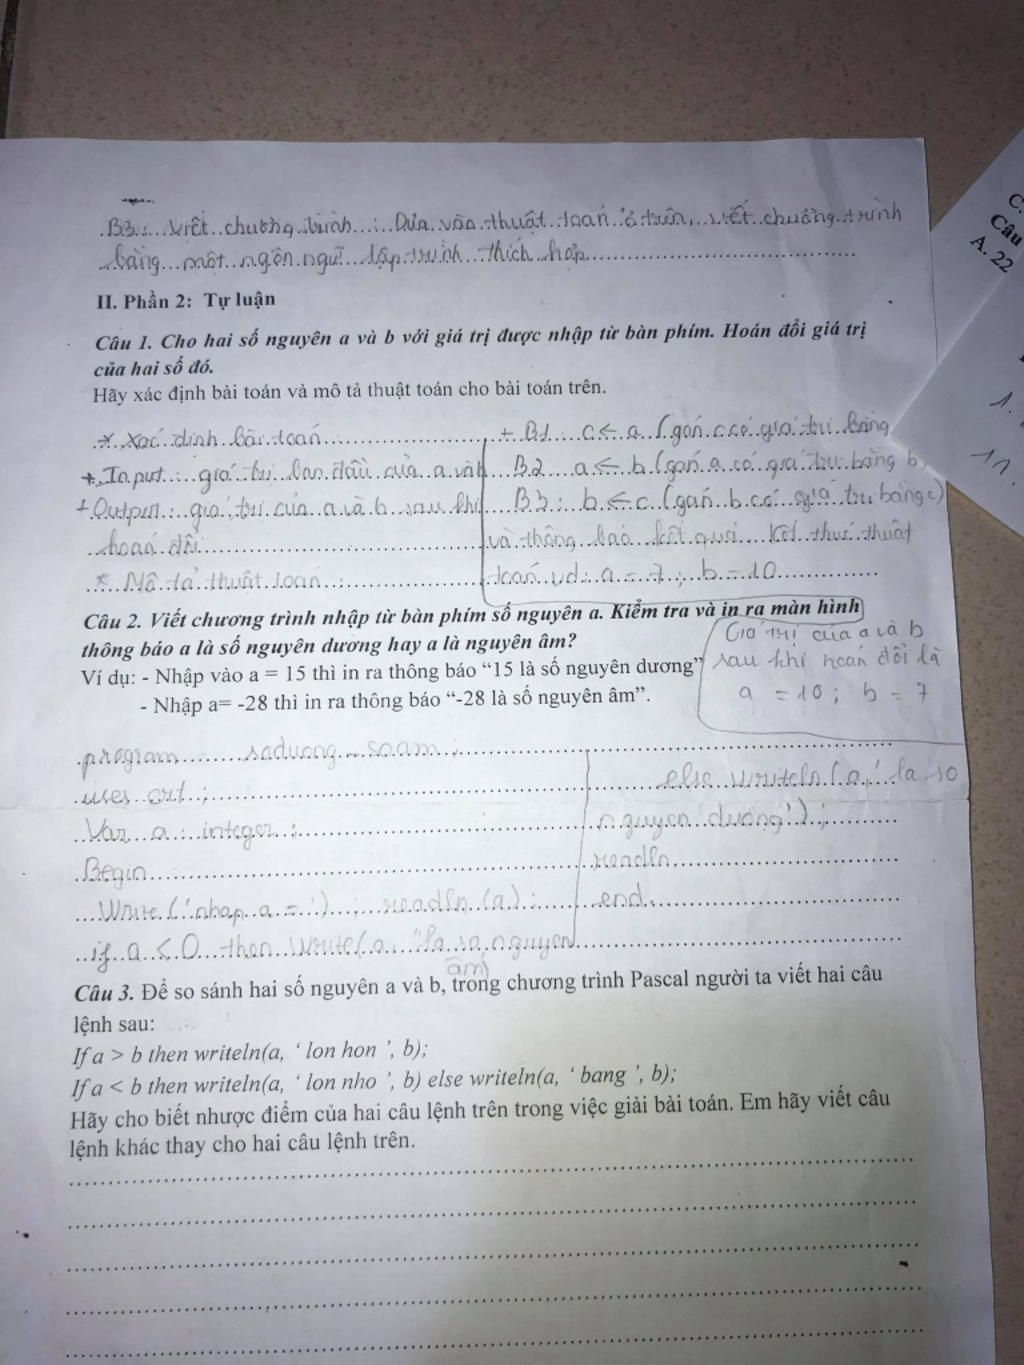 B3: Viết chương trình : Dựa vào thuật toán ở trên, viết chương trình
bằng một ngôn ngữ lập trình thích hợp
II. Phần 2: Tự luận
Câu 1. Cho hai số nguyên a và b với giá trị được nhập từ bàn phím. Hoán đổi giá trị
của hai số đó.
Hãy xác định bài toán và mô tả thuật toán cho bài toán trên.
* Xác định bài toán :
+ Input : giá trị ban đầu của a và b
+ Output : giá trị của a và b sau khi
hoán đổi
* Mô tả thuật toán :
+ B1 : c ← a (gán c có giá trị bằng
B2 : a ← b (gán a có giá trị bằng b)
B3 : b ← c (gán b có giá trị bằng c)
và thông báo kết quả, kết thúc thuật
toán vd : a = 7 ; b = 10
Giá trị của a và b
sau khi hoán đổi là
a = 10 ; b = 7
Câu 2. Viết chương trình nhập từ bàn phím số nguyên a. Kiểm tra và in ra màn hình
thông báo a là số nguyên dương hay a là nguyên âm?
Ví dụ: - Nhập vào a = 15 thì in ra thông báo “15 là số nguyên dương”
- Nhập a= -28 thì in ra thông báo “-28 là số nguyên âm”.
program saduong_soam ;
uses crt ;
Var a : integer ;
Begin
Write ('nhap a = ') ; readln (a) ;
if a < 0 then write(a, 'la so nguyen
am')
else writeln (a, ' la so
nguyen duong') ;
readln
end.
Câu 3. Để so sánh hai số nguyên a và b, trong chương trình Pascal người ta viết hai câu
lệnh sau:
If a > b then writeln(a, ‘ lon hon ’, b);
If a < b then writeln(a, ‘ lon nho ’, b) else writeln(a, ‘ bang ’, b);
Hãy cho biết nhược điểm của hai câu lệnh trên trong việc giải bài toán. Em hãy viết câu
lệnh khác thay cho hai câu lệnh trên.
C.
Câu
A. 22
1.